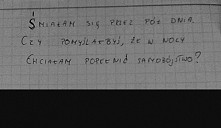 ŚMIAŁAM SIĘ PRZEZ PÓŁ DNIA,
CZY POMYŚLAŁBYŚ, ŻE W NOCY
CHCIAŁAM POPEŁNIĆ SAMOBÓJSTWO?